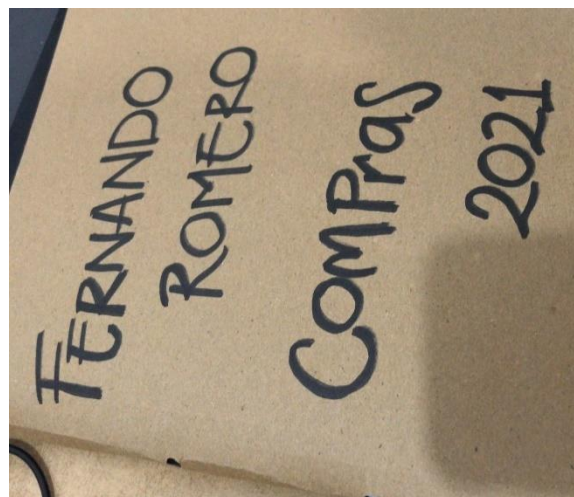 FERNANDO
ROMERO
COMPraS
2021